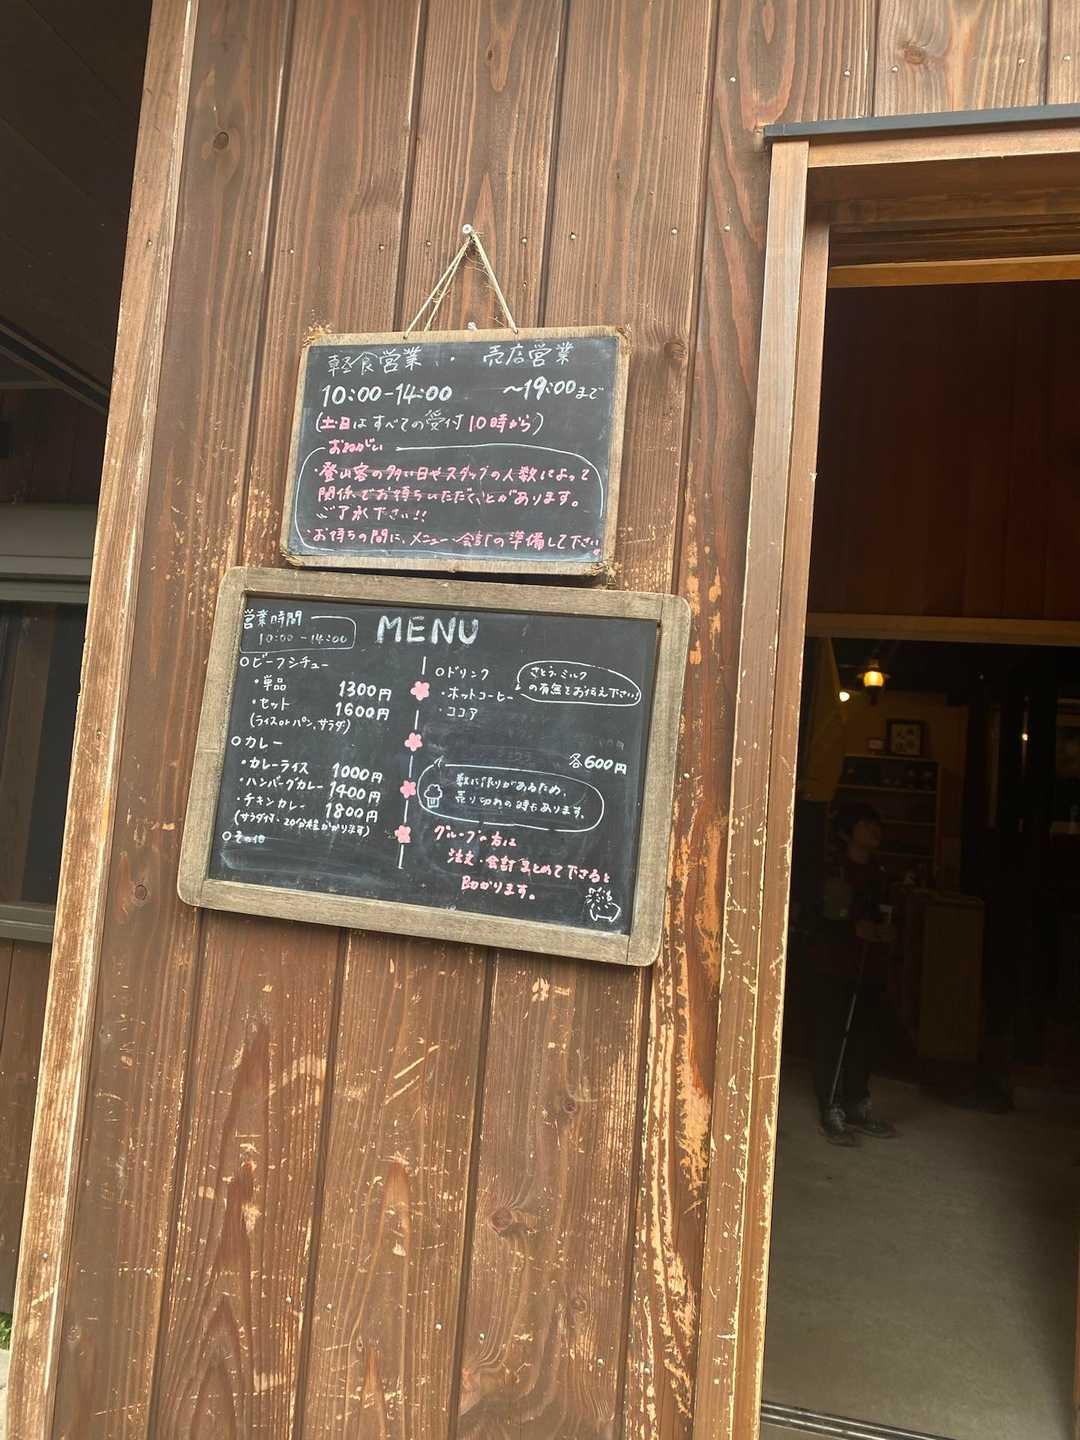 軽食営業 ・ 売店営業
10:00-14:00 ～19:00まで
(土・日はすべての受付10時から)
おねがい
・登山客の多い日やスタッフの人数によって
関係でお待ちいただくことがあります。
ご了承下さい!!
・お待ちの間に、メニュー・会計の準備して下さい
営業時間
10:00-14:00
MENU
○ビーフシチュー
・単品 1300円
・セット 1600円
(ライスorパン、サラダ)
○カレー
・カレーライス 1000円
・ハンバーグカレー 1400円
・チキンカレー 1800円
(サラダ付・20分程かかります)
○その他
○ドリンク
・ホットコーヒー
・ココア
さとう、ミルク
の有無をお伝え下さい!
各600円
数に限りがあるため、
売り切れの時もあります。
グループの方は
注文・会計まとめて下さると
助かります。